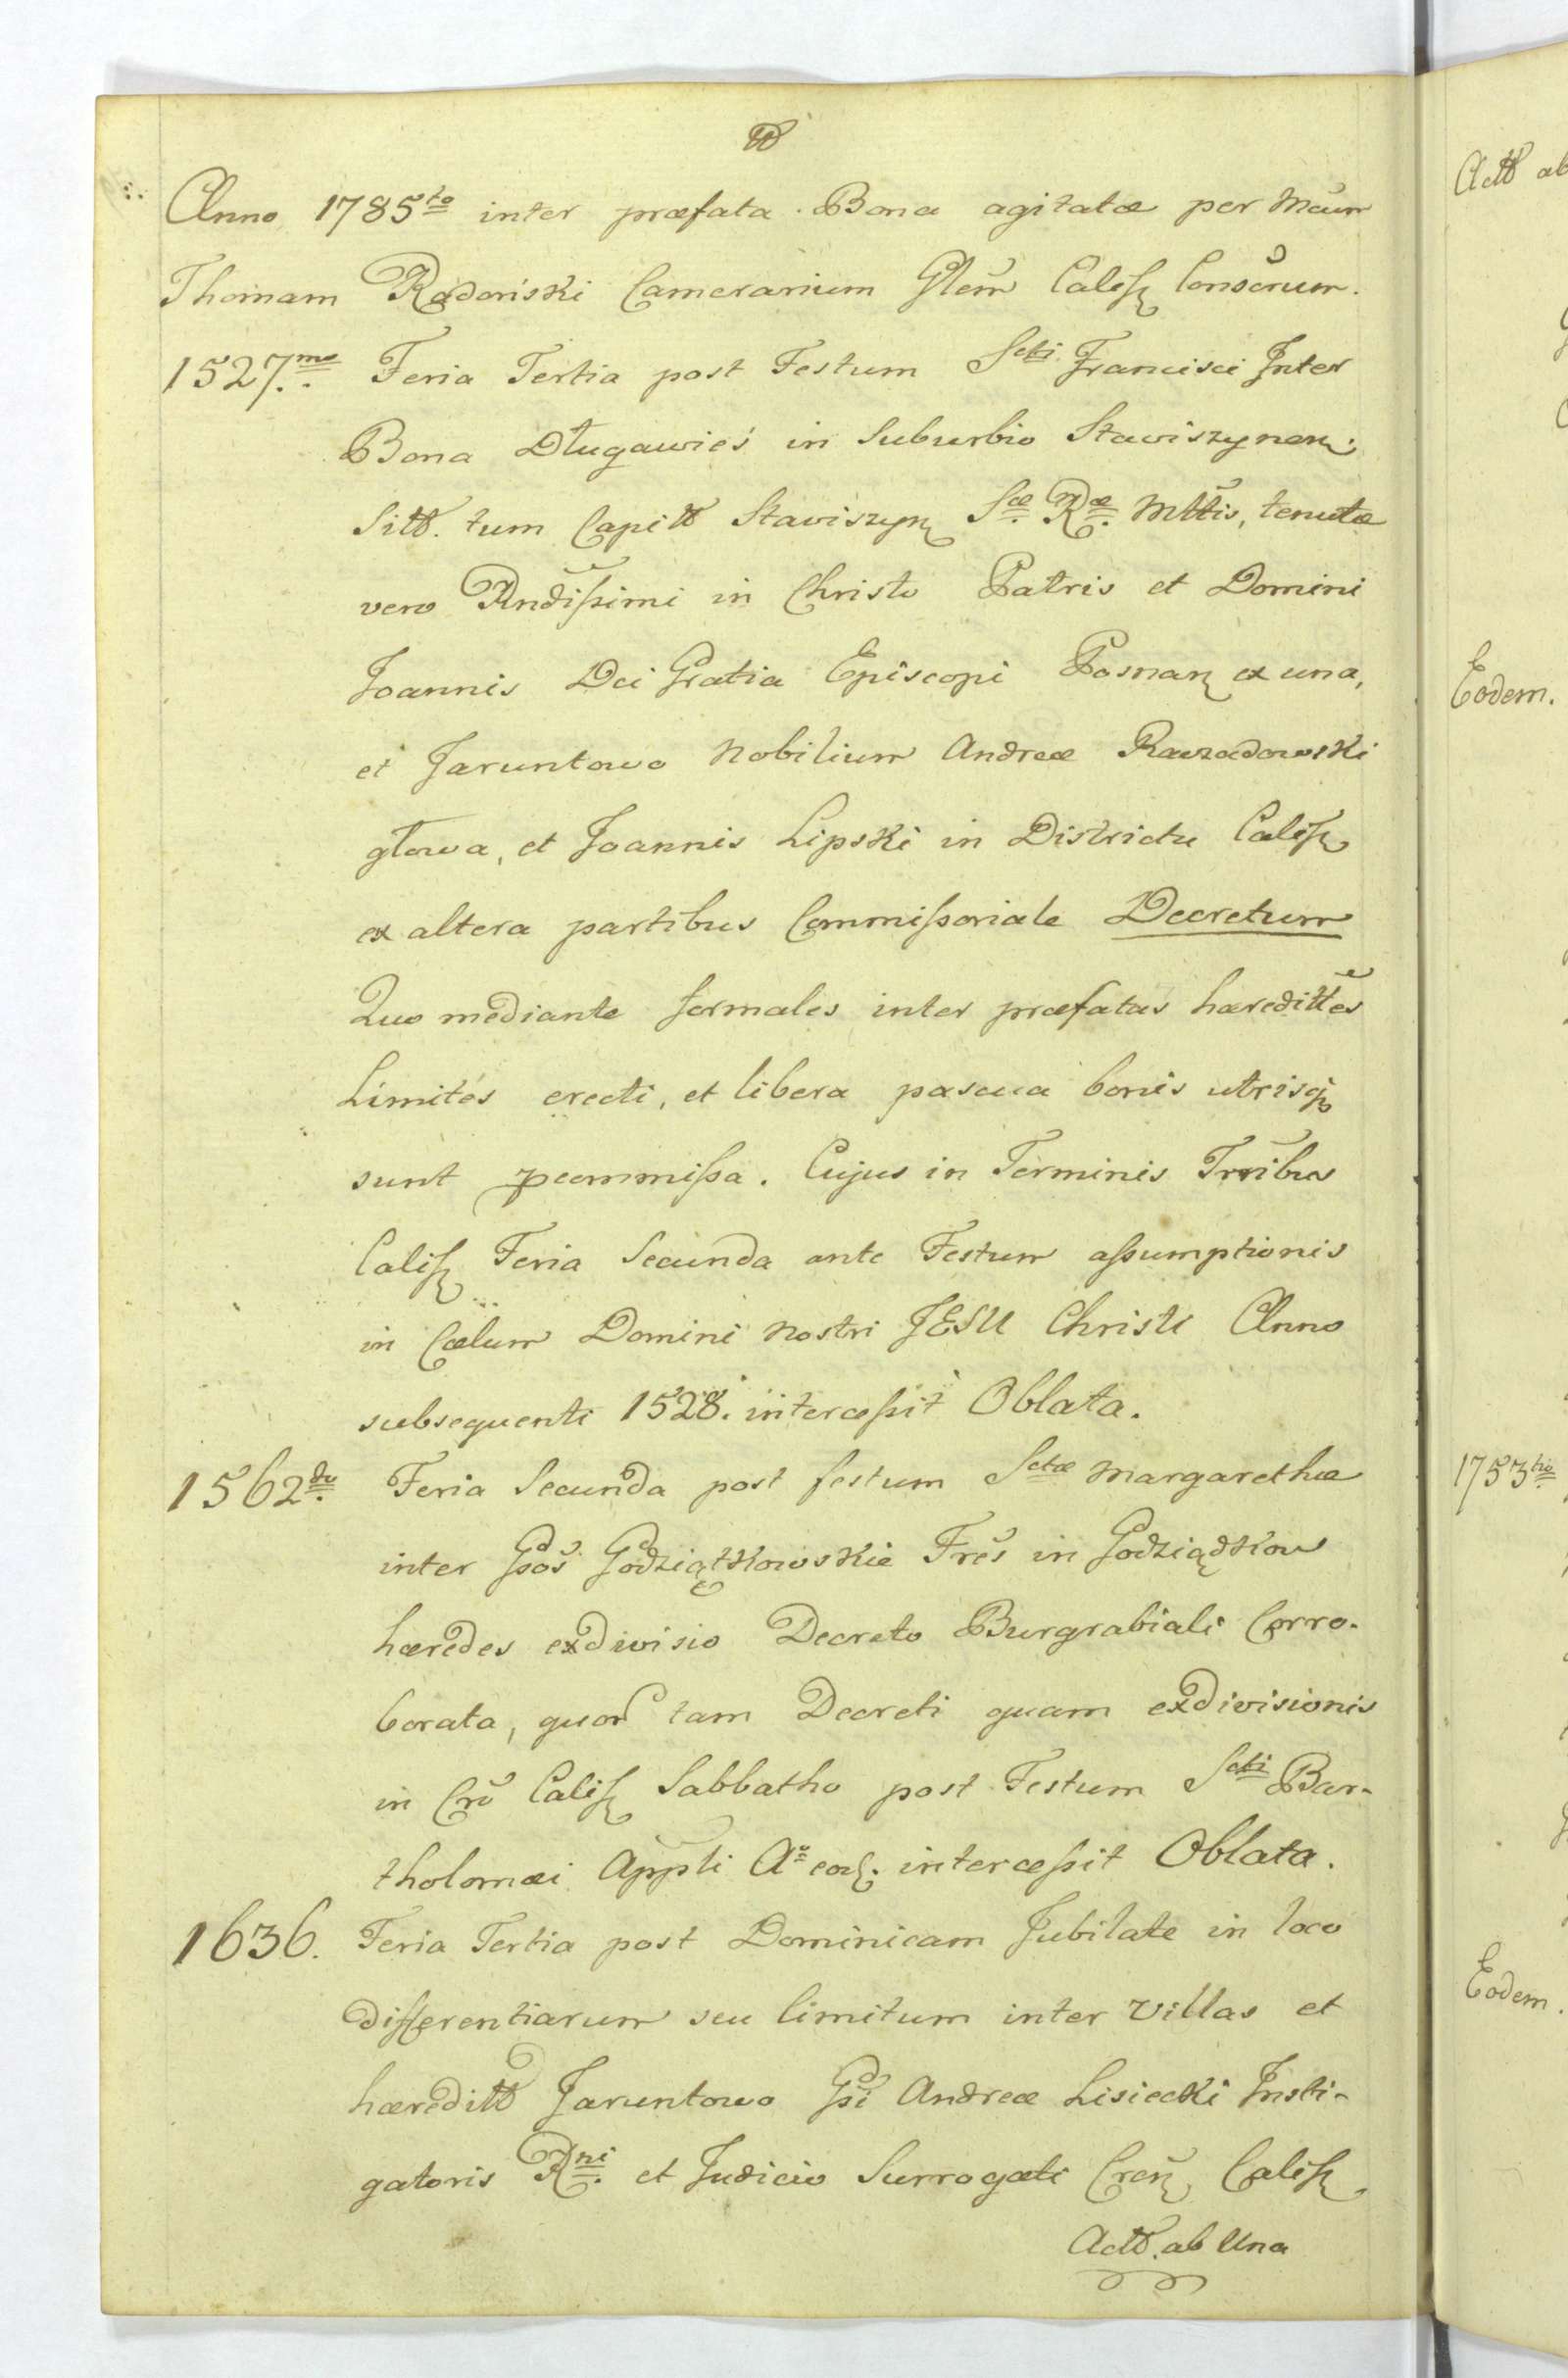 Anno 1785to inter præfata Bona agitatæ per Mcum
Thomam Radoński Camerarium Gtlem Calisz Conscrum.
1527.mo Feria Tertia post Festum Scti Francisci Inter
Bona Długawieś in Suburbio Stawiszynen:
Sitt. tum Capitt Stawiszyn Sæ. Ræ. Mttis, tenutæ
vero Rndissimi in Christo Patris et Domini
Joannis Dei Gratia Episcopi Posnan ex una,
et Jaruntowo Nobilium Andreæ Rawzadowski
głowa, et Joannis Lipski in Districtu Calisz
ex altera partibus Commissoriale Decretum
Quo mediante formales inter præfatas hæredittes
Limites erecti, et libera pascua bonis utrisq
sunt pcommissa. Cujus in Terminis Trribus
Calisz Feria Secunda ante Festum assumptionis
in Cœlum Domini Nostri JESU Christi Anno
subsequenti 1528. intercessit Oblata.
1562do. Feria Secunda post festum Sctæ Margarethæ
inter Gsos Godziątkowskie Fres in Godziądkow
hæredes exdivisio Decreto Burgrabiali Corro-
borata, quor tam Decreti quam exdivisionis
in Cro Calisz Sabbatho post Festum Scti Bar-
tholomæi Appli Ao eod. intercessit Oblata.
1636. Feria Tertia post Dominicam Jubilate in loco
differentiarum seu limitum inter Villas et
hæreditt Jaruntowo Gsi Andreæ Lisiecki Insti-
gatoris Rni. et Judicio Surrogati Cren Calisz
Actt. ab Una
Actt ab
Eodem.
1753tio
Eodem.